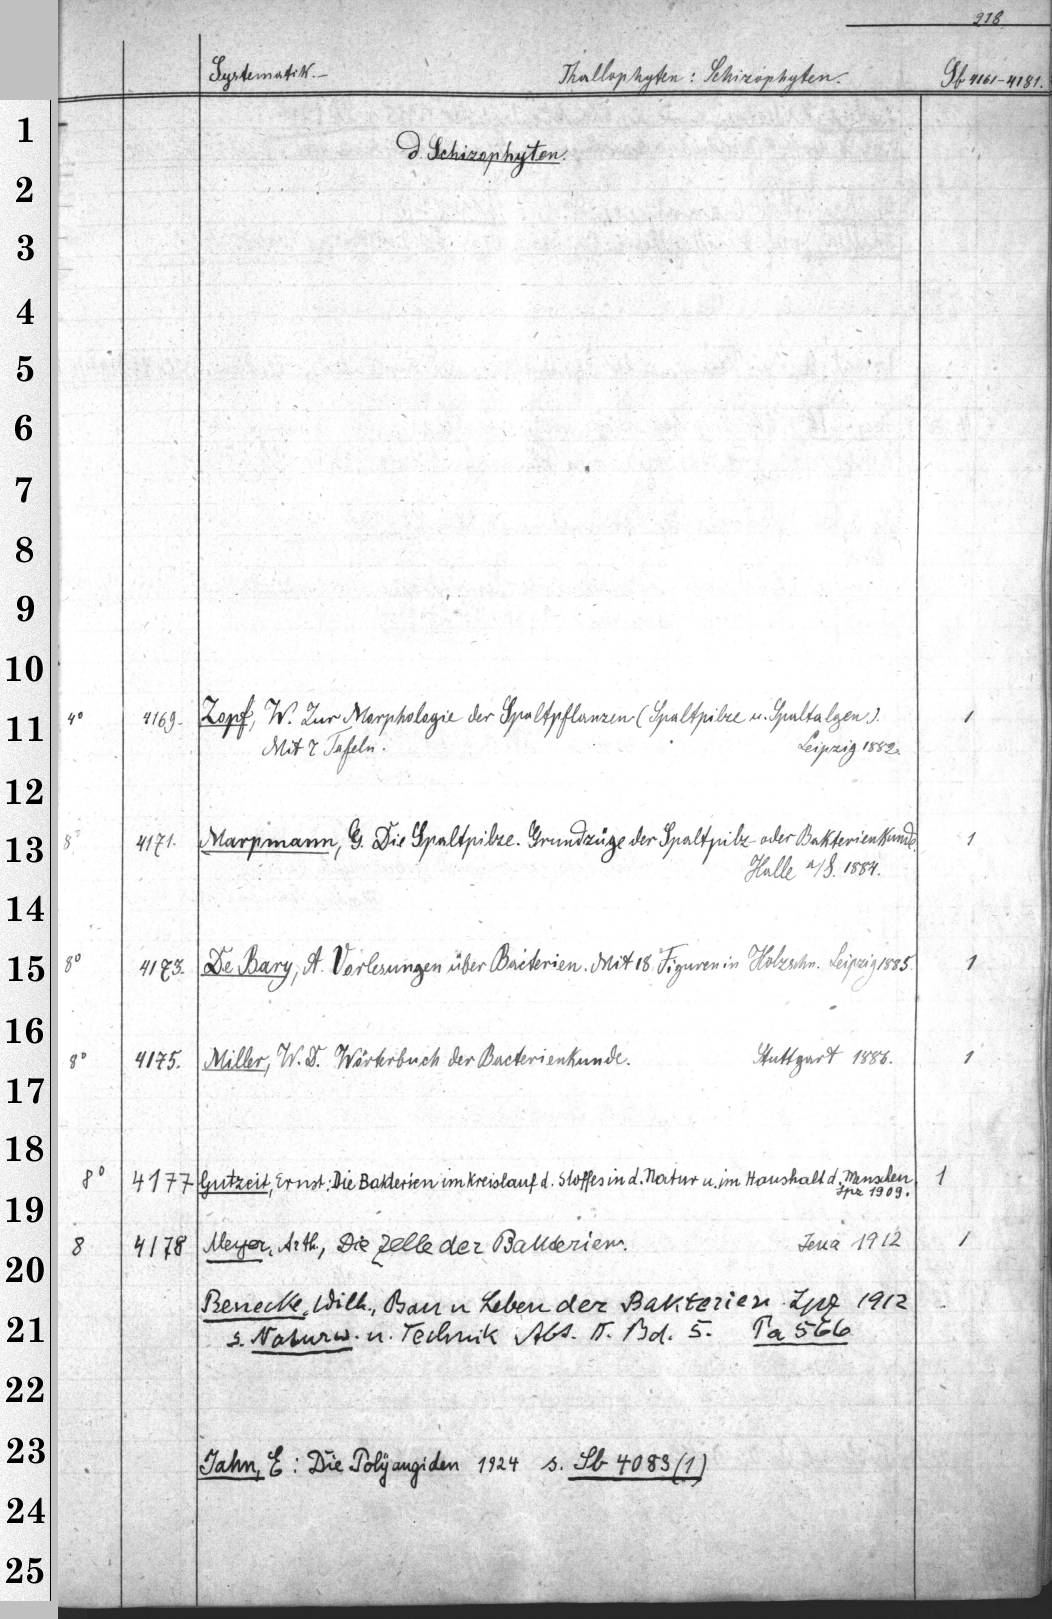 218
Systematik. Thallophyten: Schizophyten. Sb 4161-4181.
1
d. Schizophyten.
2
3
4
5
6
7
8
9
10
11 4° 4169. Zopf, W. Zur Morphologie der Spaltpflanzen (Spaltpilze u. Spaltalgen). 1
Mit 7 Tafeln. Leipzig 1882.
12
13 8° 4171. Marpmann, G. Die Spaltpilze. Grundzüge der Spaltpilz- oder Bakterienkunde. 1
Halle a/S. 1884.
14
15 8° 4173. De Bary, A. Vorlesungen über Bacterien. Mit 18 Figuren in Holzschn. Leipzig 1885. 1
16
8° 4175. Miller, W. D. Wörterbuch der Bacterienkunde. Stuttgart 1886. 1
17
18
8° 4177 Gutzeit, Ernst: Die Bakterien im Kreislauf d. Stoffes in d. Natur u. im Haushalt d. Menschen. 1
Lpz 1909.
19
8 4178 Meyer, Arth., Die Zelle der Bakterien. Jena 1912 1
20
Benecke, Wilh., Bau u Leben der Bakterien. Lpzg 1912
21 s. Naturw. u. Technik Abt. II. Bd. 5. Ta 566
22
23
Jahn, E: Die Polyangiden 1924 s. Sb 4083(1)
24
25